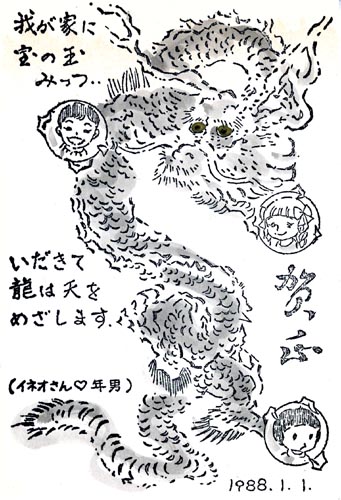 我が家に
宝の玉
みっつ・・
いだきて
龍は天を
めざします.
(イネオさん♡年男)
賀正
1988.1.1.